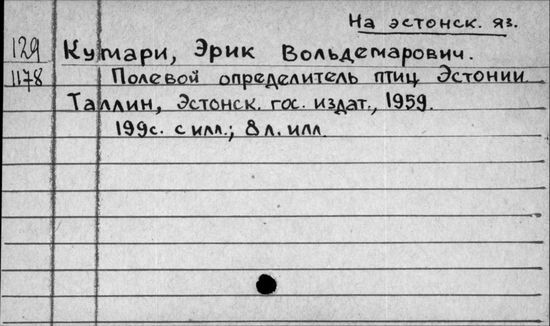 На эстонск. яз.
129 Кумари, Эрик Вольдемарович.
1178 Полевой определитель птиц Эстонии
Таллин, Эстонск. гос. издат., 1959.
199с. с илл.; 8 л. илл.